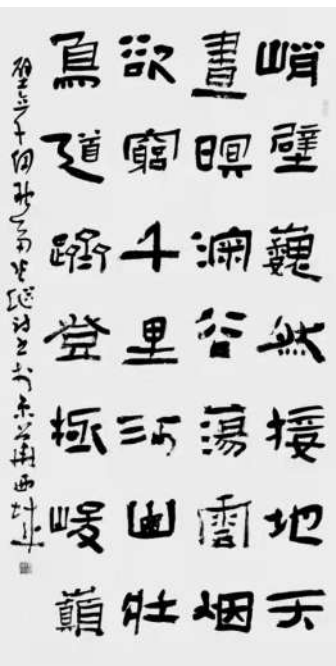 峭壁巍然接地天
晝暝澗谷蕩雲烟
欲窮千里河山壯
鳥道躋登極峻巔
壁立千仞